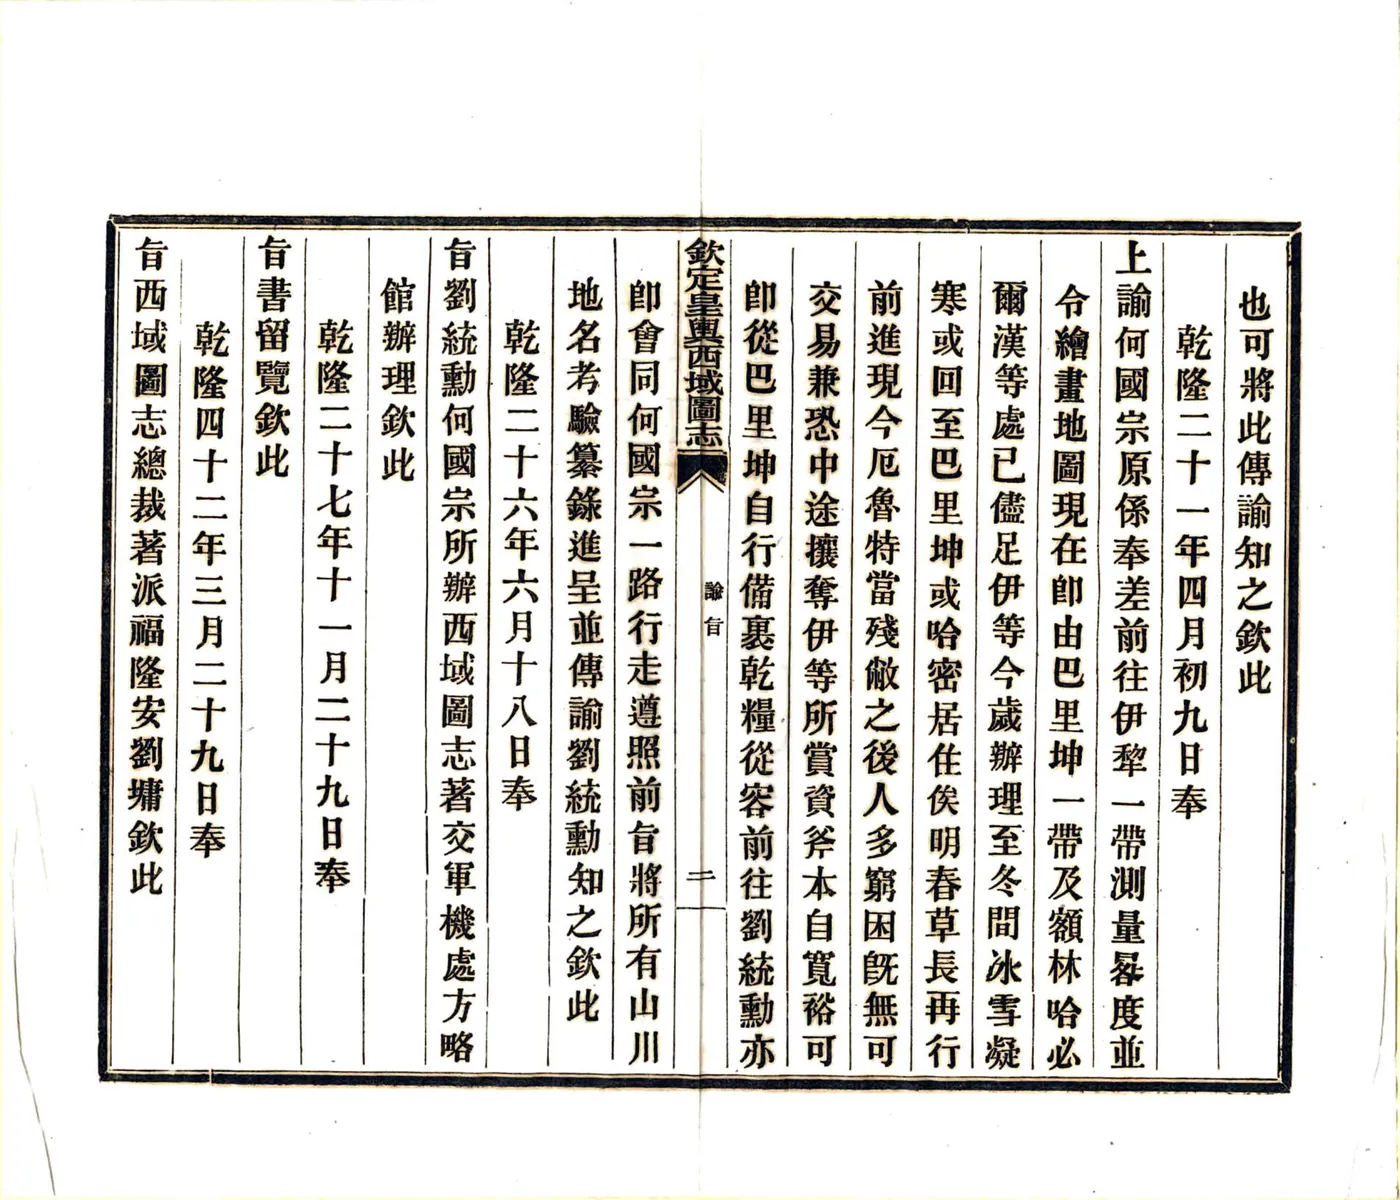 也可將此傳諭知之欽此
乾隆二十一年四月初九日奉
上諭何國宗原係奉差前往伊犂一帶測量晷度並
令繪畫地圖現在卽由巴里坤一帶及額林哈必
爾漢等處已儘足伊等今歲辦理至冬間冰雪凝
寒或回至巴里坤或哈密居住俟明春草長再行
前進現今厄魯特當殘敝之後人多窮困旣無可
交易兼恐中途攘奪伊等所賞資斧本自寬裕可
卽從巴里坤自行備裹乾糧從容前往劉統勳亦
欽定皇輿西域圖志
諭旨
二
卽會同何國宗一路行走遵照前旨將所有山川
地名考驗纂錄進呈並傳諭劉統勳知之欽此
乾隆二十六年六月十八日奉
旨劉統勳何國宗所辦西域圖志著交軍機處方略
館辦理欽此
乾隆二十七年十一月二十九日奉
旨書留覽欽此
乾隆四十二年三月二十九日奉
旨西域圖志總裁著派福隆安劉墉欽此